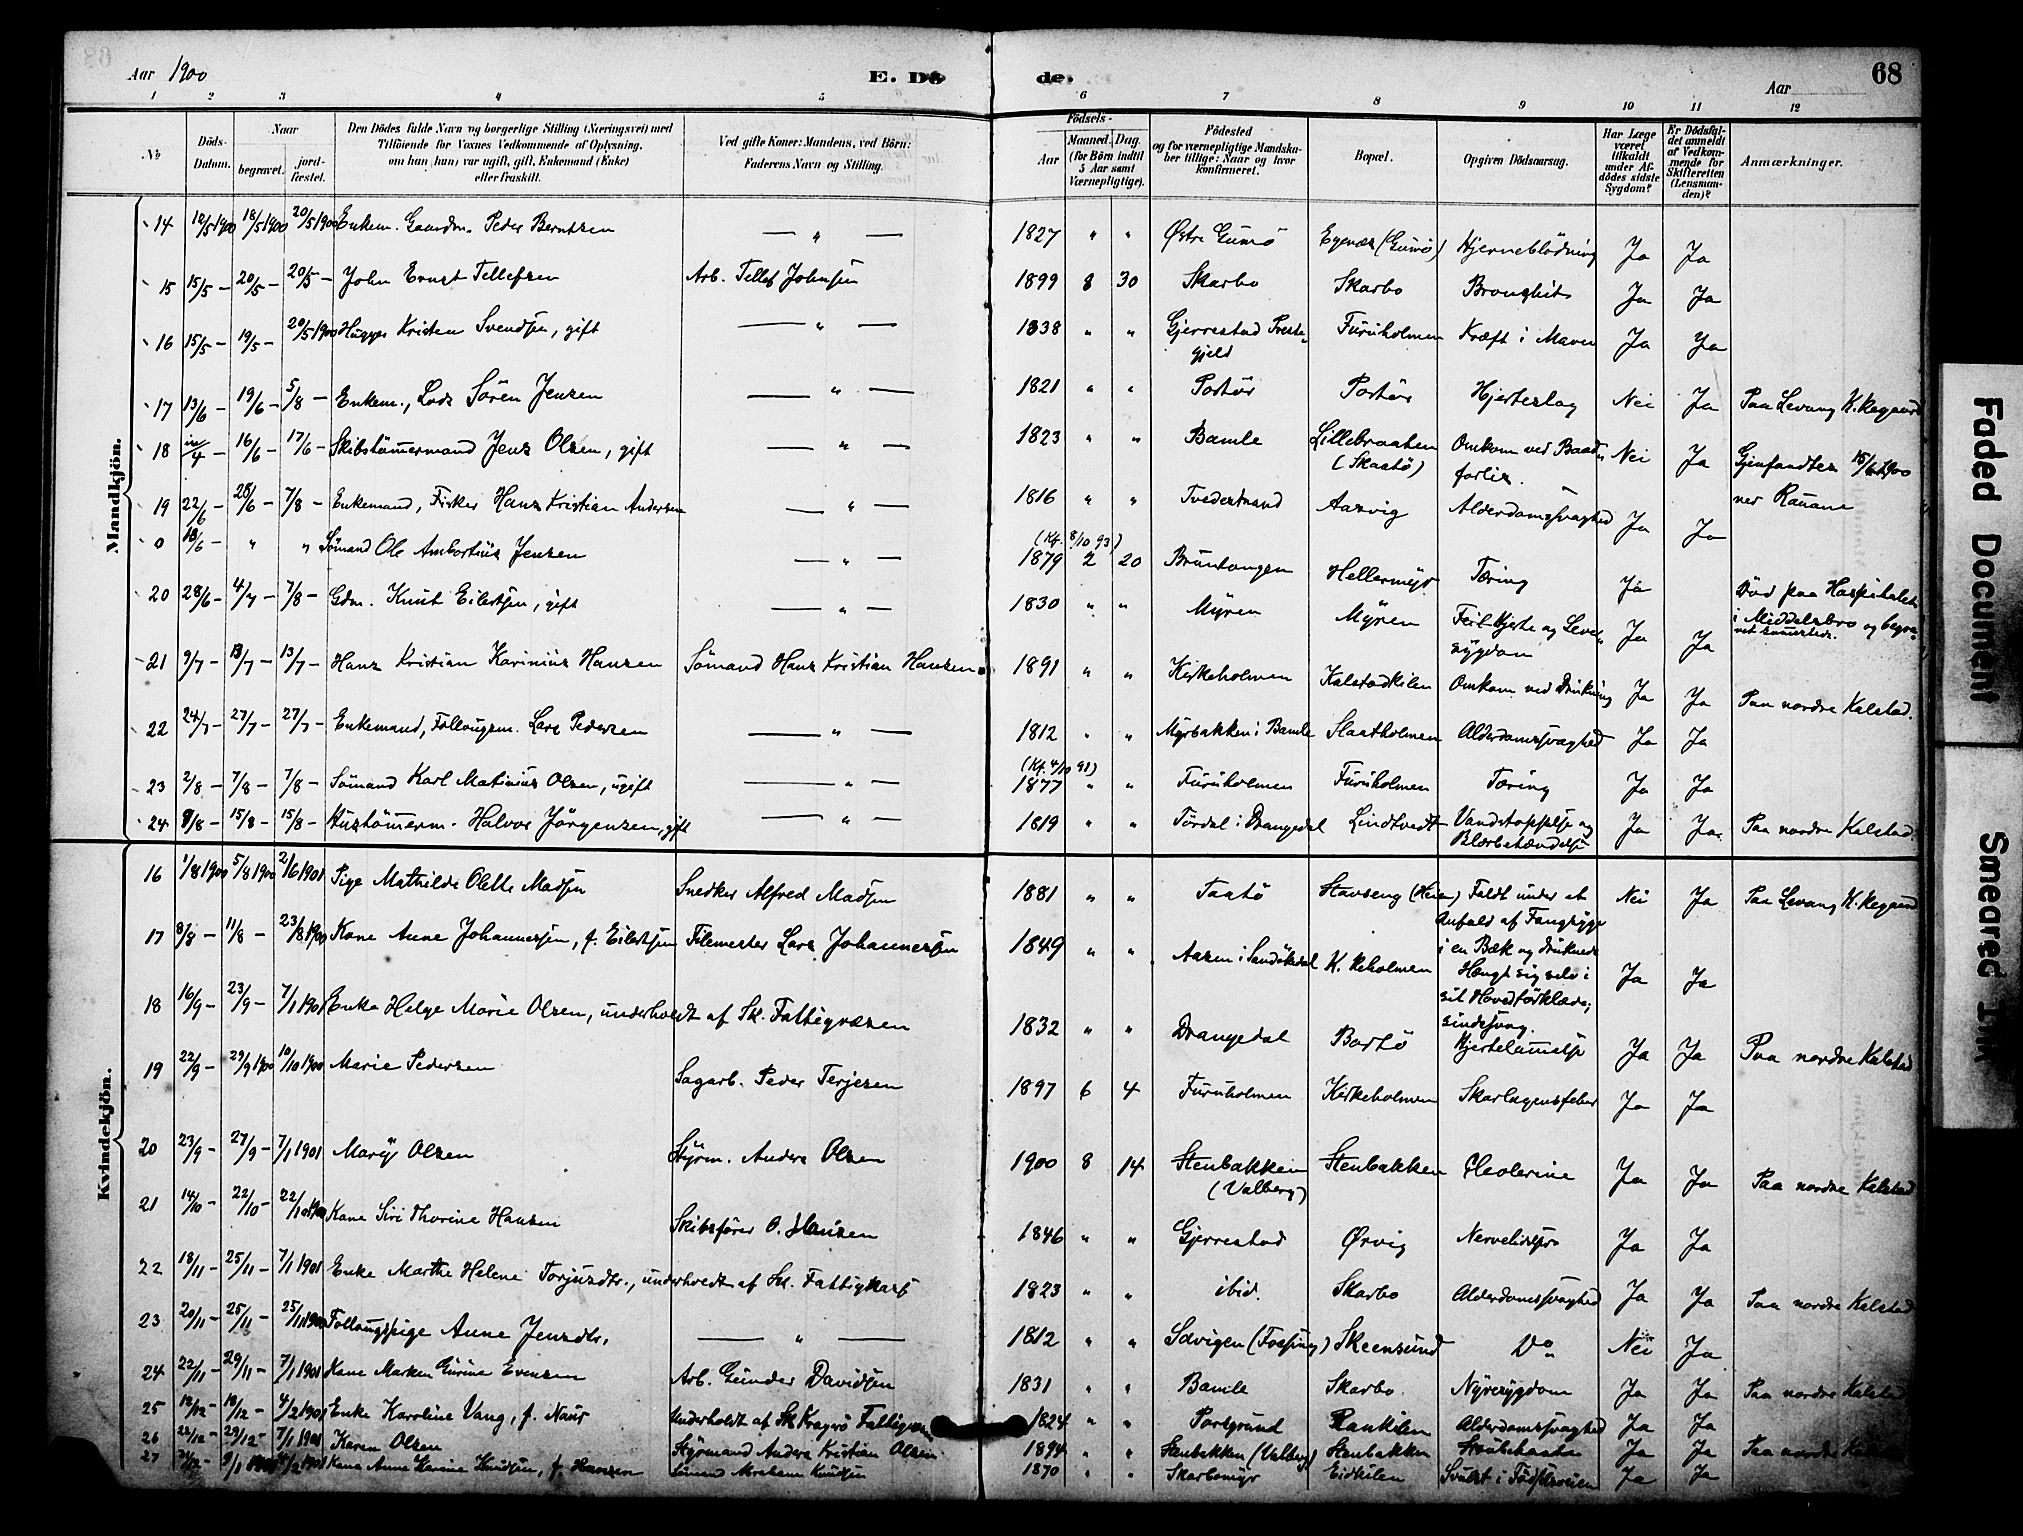 Aar 1900
E. Dö
de.
Aar
68
1 2 3 4 5 6 7 8 9 10 11 12
No
Döds-Datum.
Naar
begravet.
jord-fæstet.
Den Dödes fulde Navn og borgerlige Stilling (Næringsvei) med
Tilföiende for Voxnes Vedkommende af Oplysning,
om han (hun) var ugift, gift, Enkemand (Enke)
eller fraskilt.
Ved gifte Koner: Mandens, ved Börn:
Faderens Navn og Stilling.
Födsels-
Aar
Maaned. Dag.
(for Börn indtil
5 Aar samt
Værnepligtige).
Födested
og for værnepligtige Mandska-
ber tillige: Naar og hvor
konfirmeret.
Bopæl.
Opgiven Dödsaarsag.
Har Læge
været
tilkaldt
under Af-
dödes sidste
Sygdom?
Er Dödsfal-
det anmeldt
af Vedkom-
mende for
Skifteretten
(Lensman-
den)?
Anmærkninger.
Mandkjön.
14 12/5 1900 18/5 1900 20/5 1900 Enkem. Gaardm. Peder Berntsen — " — 1827 " " Østre Gumö Egenæs (Gumö) Hjerneblödning Ja Ja
15 15/5 — 20/5 — 20/5 — John Ernst Tellefsen Arb. Tellef Johnsen 1899 8 30 Skarbo Skarbo Bronchit Ja Ja
16 15/5 — 19/5 — 20/5 1900 Hugger Kristen Svendsen, gift — " — 1838 " " Gjerrestad Preste-
gjeld Furuholmen Kræft i Maven Ja Ja
17 13/6 — 19/6 — 5/8 — Enkem., Lods Sören Jensen — " — 1821 " " Portör Portör Hjerteslag Nei Ja Paa Levang K.kegaard
18 4 — 16/6 — 17/6 — Skibstömermand Jens Olsen, gift — " — 1823 " " Bamle Lillebraaten
(Skaatö) Omkom ved Baad-
forlis. Nei Ja Gjenfandtes 15/6 1900
ner Rauane
19 22/6 — 28/6 — 7/8 — Enkemand, Fisker Hans Kristian Andersen — " — 1816 " " Tvedestrand Aasvig Alderdomssvaghed Ja Ja
0 18/6 " " Sömand Ole Ambortius Jensen — " — (Kf. 8/10 93)
1879 2 20 Bruntangen Hellermyr Tæring Ja Död paa Hospitalet
i Middelsbro og begra-
vet sammesteds.
20 28/6 — 4/7 — 7/8 — Gdm. Knut Eilertsen, gift — " — 1830 " " Myren Myren Feil Hjerte og Lever-
sygdom Ja Ja
21 9/7 — 13/7 — 13/7 — Hans Kristian Karinius Hansen Sömand Hans Kristian Hansen 1891 " " Kirkeholmen Kalstadkilen Omkom ved Drukning Ja Ja Paa nordre Kalstad.
22 24/7 — 27/7 — 27/7 — Enkemand, Follaugsm. Lars Pedersen — " — 1812 " " Myrbakken i Bamle Slaatholmen Alderdomssvaghed Ja Ja
23 2/8 — 7/8 — 7/8 — Sömand Karl Matinius Olsen, ugift — " — (Kf. 4/10 91)
1877 " " Furuholmen Furuholmen Tæring Ja Ja
24 9/8 — 15/8 — 15/8 — Hustömerm. Halvor Jörgensen, gift — " — 1819 " " Tördal i Drangedal Lindtvedt Vandstoppelse og
Blærbetændelse Ja Ja Paa nordre Kalstad
Kvindekjön.
16 1/8 1900 5/8 1900 2/6 1901 Pige Mathilde Olette Madsen Snedker Alfred Madsen 1881 " " Taatö Stavseng (Heien) Faldt under et
Anfald af Fangsyge
i en Bæk og druknede Nei Ja Paa Levang K.kegaard
17 8/8 — 11/8 — 23/8 1900 Kone Anne Johannessen, f. Eilertsen Filemester Lars Johannessen 1849 " " Aasen i Sandökedal K.rkeholmen Hængt sig selv i
sit Hovedtörklæde;
sindssvag. Ja Ja
18 16/9 — 23/9 — 7/1 1901 Enke Helge Marie Olsen, underholdt af Sk. Fattigvæsen 1832 " " Drangedal Bortö Hjertelamelse Ja Ja Paa nordre Kalstad
19 22/9 — 29/9 1900 10/10 1900 Marie Pedersen Sagarb. Peder Terjesen 1897 6 4 Furuholmen Kirkeholmen Skarlagensfeber Ja Ja
20 23/9 — 27/9 — 7/1 1901 Mary Olsen Styrm. Anders Olsen 1900 8 14 Stenbakken
(Valberg) Stenbakken Cholerine Ja Ja Paa nordre Kalstad
21 14/10 — 22/10 — 22/10 1900 Kone Siri Thorine Hansen Skibsförer O. Hansen 1846 " " Gjerrestad Ørvig Nervelidelse Ja Ja
22 18/11 — 25/11 — 7/1 1901 Enke Marthe Helene Torjusdtr., underholdt af Sk. Fattigkasse 1823 " " ibid. Skarbo Alderdomssvaghed Ja Ja Paa nordre Kalstad
23 20/11 — 25/11 — 25/11 1900 Follaugspige Anne Jensdtr. — " — 1812 " " Solvigen (Fossing) Skeensund Do Nei Ja
24 22/11 — 29/11 — 7/1 1901 Kone Maren Gurine Evensen Arb. Gunder Davidsen 1831 " " Bamle Skarbo Nyresygdom Ja Ja Paa nordre Kalstad
25 12/12 — 18/12 — 4/2 1901 Enke Karoline Vang, f. Naur Underholdt af Sk Kragerö Fattigvæsen 1824 " " Porsgrund Rankilen Alderdomssvaghed Ja Ja
26 22/12 — 29/12 — 7/1 1901 Karen Olsen Styrmand Anders Kristian Olsen 1894 " " Stenbakken (Valberg) Stenbakken Strubehoste Ja Ja Paa nordre Kalstad
27 9/1 Kone Anne Karine Knudsen, f. Hansen Sömand Abraham Knudsen 1870 " " Skarbomyr Eidkilen Svulst i Födselsveien Ja Ja
Faded Document
Smeared Ink